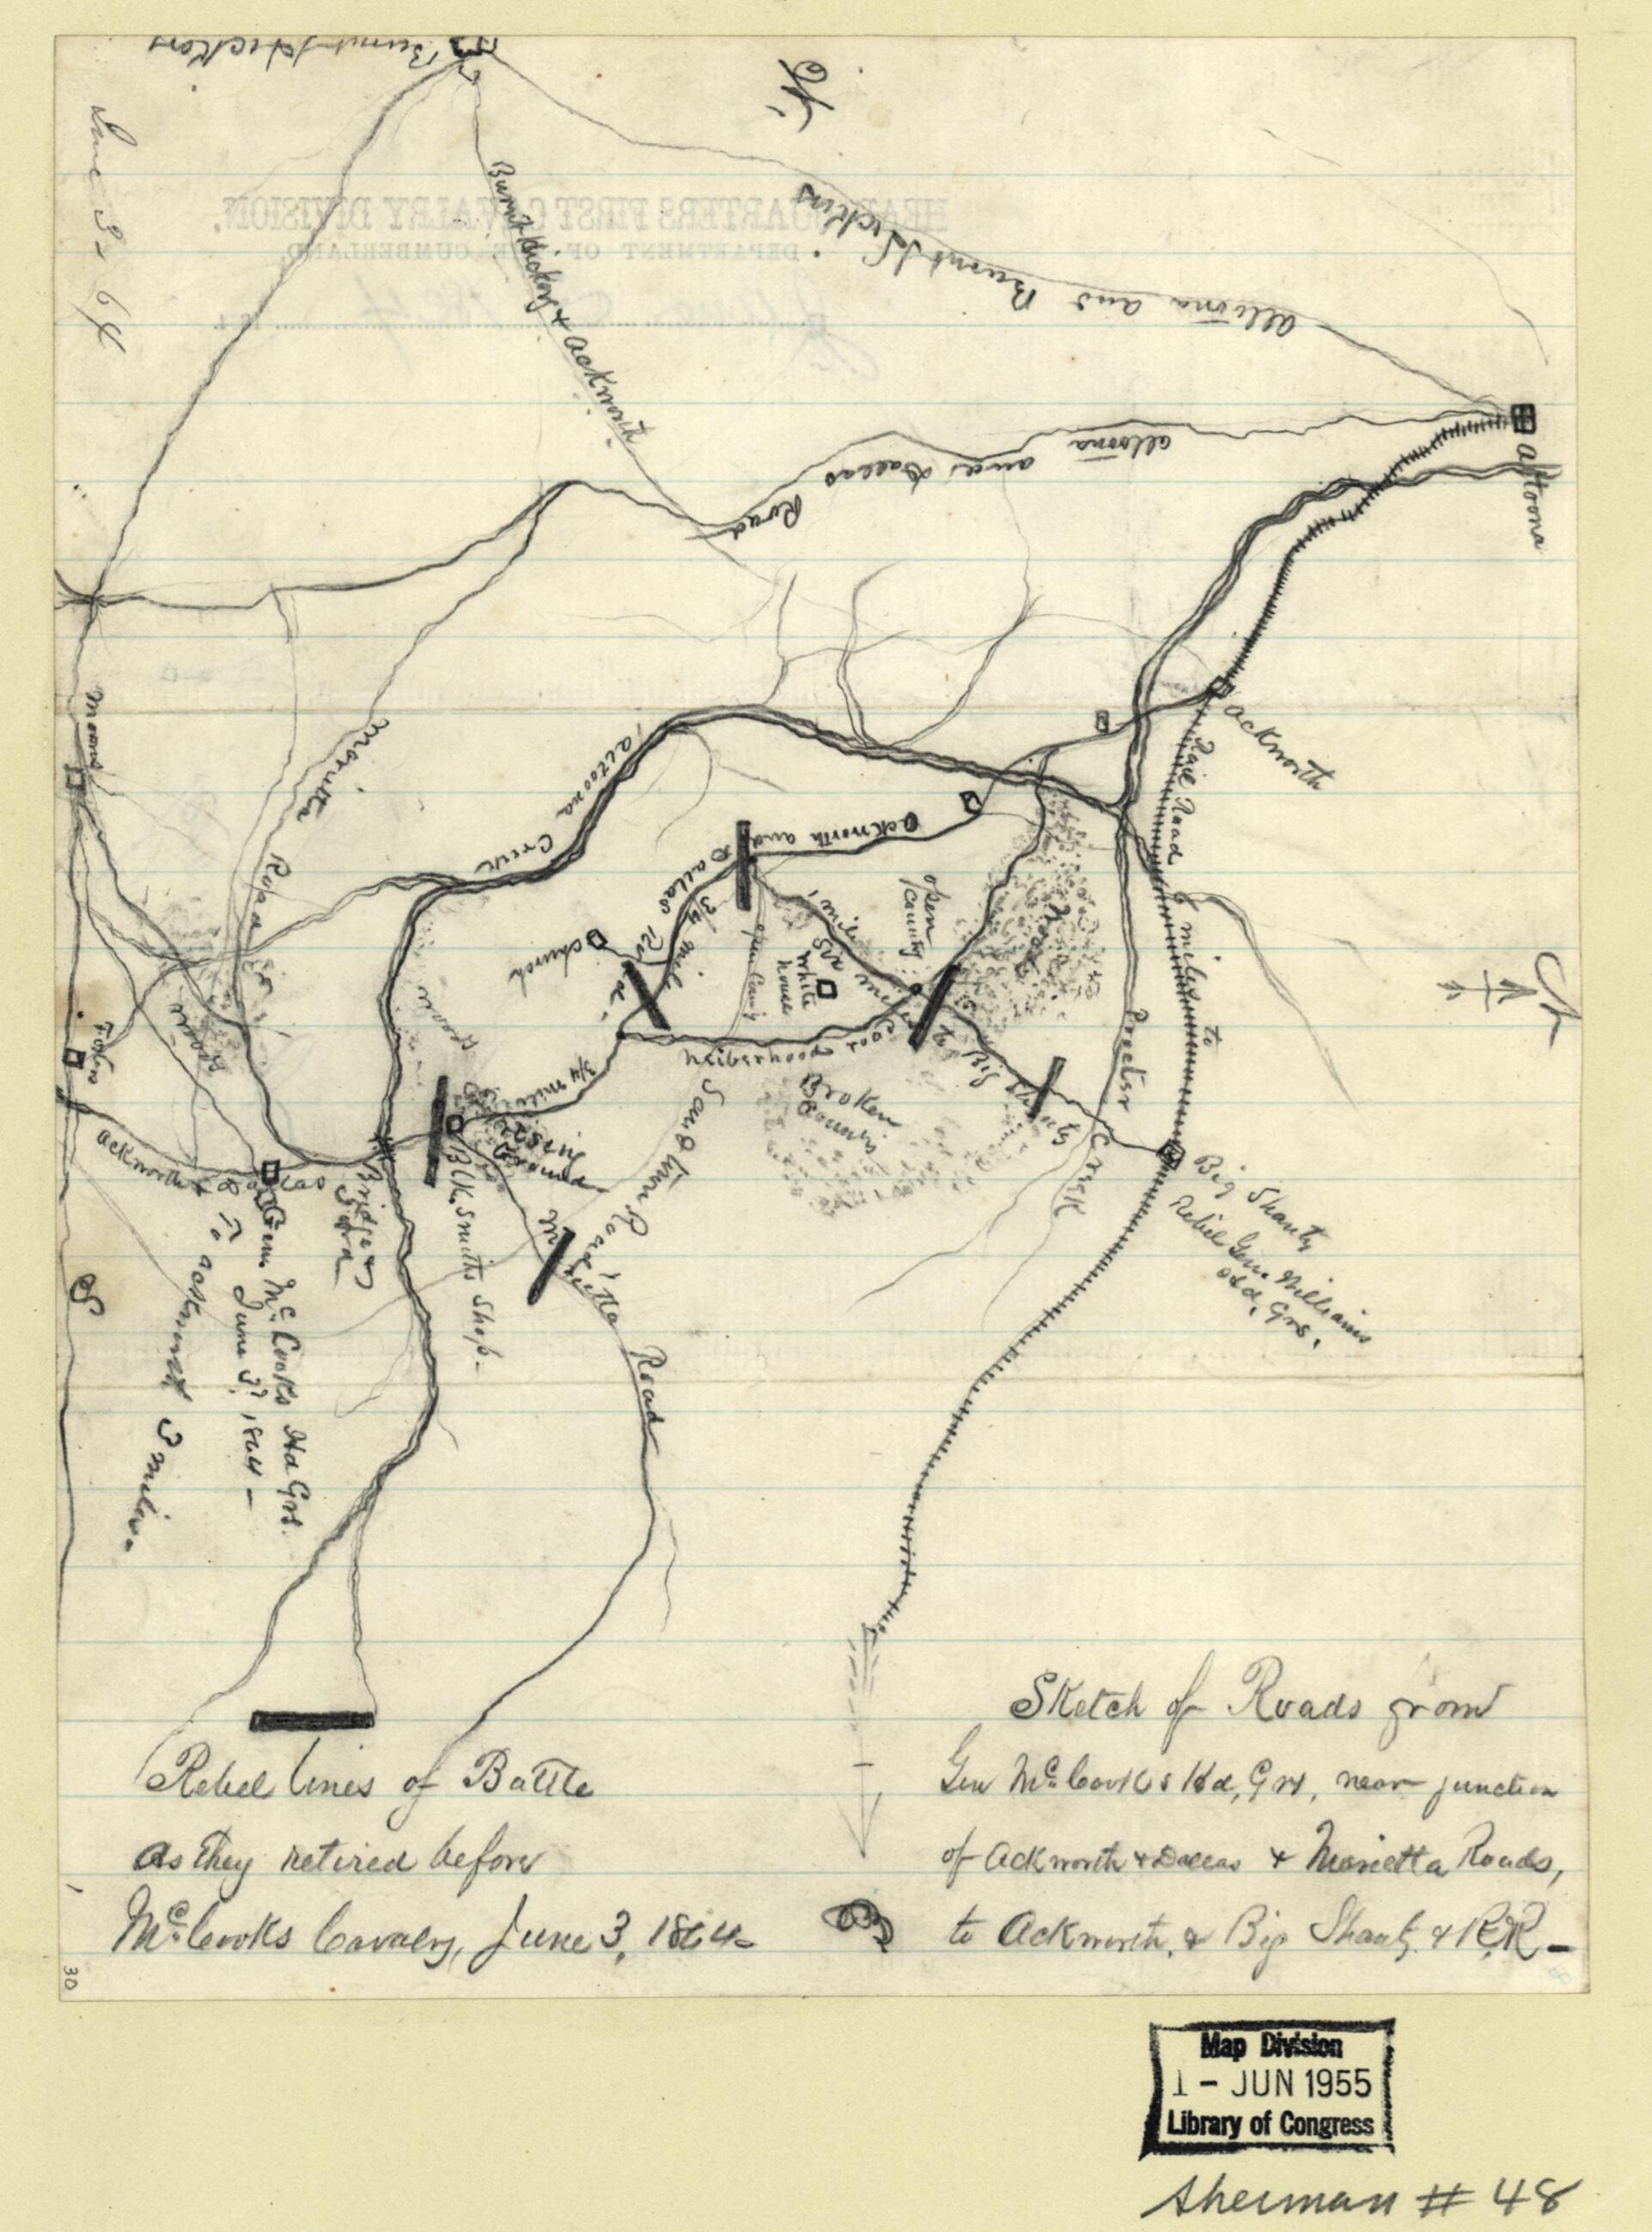 Burnt Hickory
June 3 - 64
N.
HEADQUARTERS FIRST CAVALRY DIVISION,
DEPARTMENT OF THE CUMBERLAND,
Burnt Hickory & Ackworth
altoona and Burnt Hickory
altoona and Dallas Road
altoona
ackworth
Rail Road 6 miles to
Moons
Marietta
Road
altoona Creek
Ackworth and Dallas Rd
3/4 mile
Church
open
County
White
house
Woods
Neiberhood road
to Big Shanty
Proctor Creek
Broken
County
Sand town Road
3/4 mile
Rising
Ground
Blk. Smiths Shop -
Marietta Road
Bridge &
Ford
ackworth & Dallas
Gen Mc.Cooks Hd Qrs.
June 3, 1864 -
To ackworth 3 miles.
S
Big Shanty
Rebel Gen. Williams
Hd. Qrs.
Rebel lines of Battle
as they retired before
Mc.Cooks Cavalry, June 3, 1864
Sketch of Roads from
Gen Mc.Cooks Hd, Qrs, near junction
of Ackworth & Dallas & Marietta Roads,
to Ackworth, & Big Shanty & R.R -
30
Map Division
1 - JUN 1955
Library of Congress
Sherman # 48